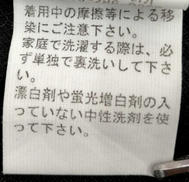 着用中の摩擦等による移
染にご注意下さい。
家庭で洗濯する際は、必
ず単独で裏洗いして下さ
い。
漂白剤や蛍光増白剤の入
っていない中性洗剤を使
って下さい。